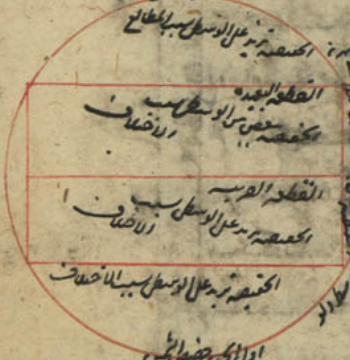 الحقيقية تزيد على الوسطى بسبب المطالع
القطعة البعيدة
الحقيقية تنقص من الوسطى بسبب
الاختلاف
القطعة القريبة
الحقيقية تزيد على الوسطى بسبب
الاختلاف
الحقيقية تزيد على الوسطى بسبب الاختلاف